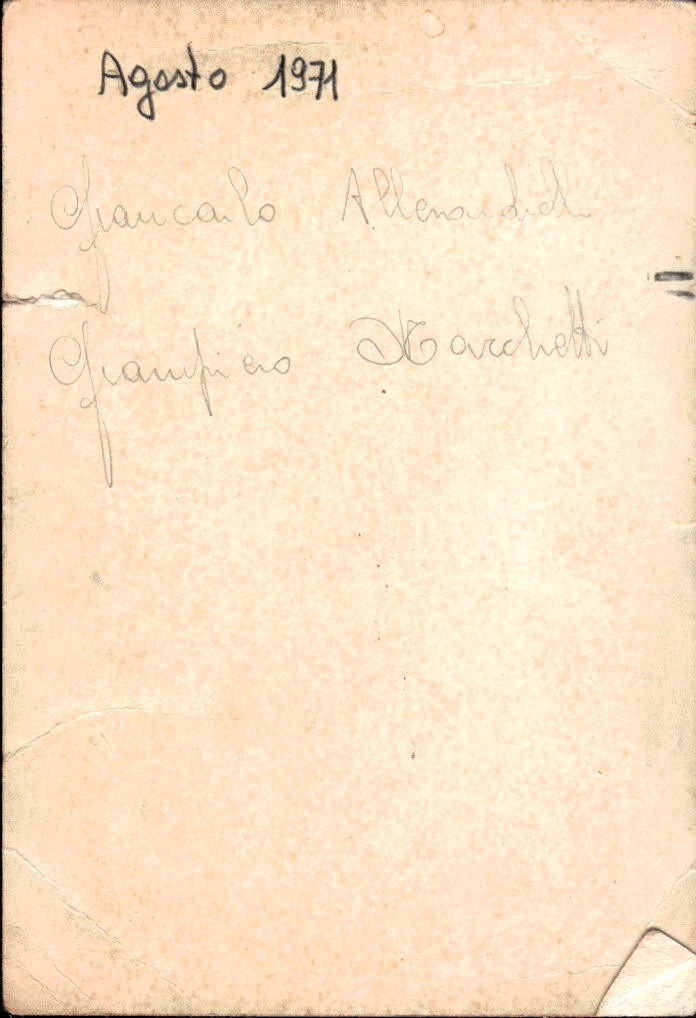 Agosto 1971
Giancarlo
Giampiero Marchetti